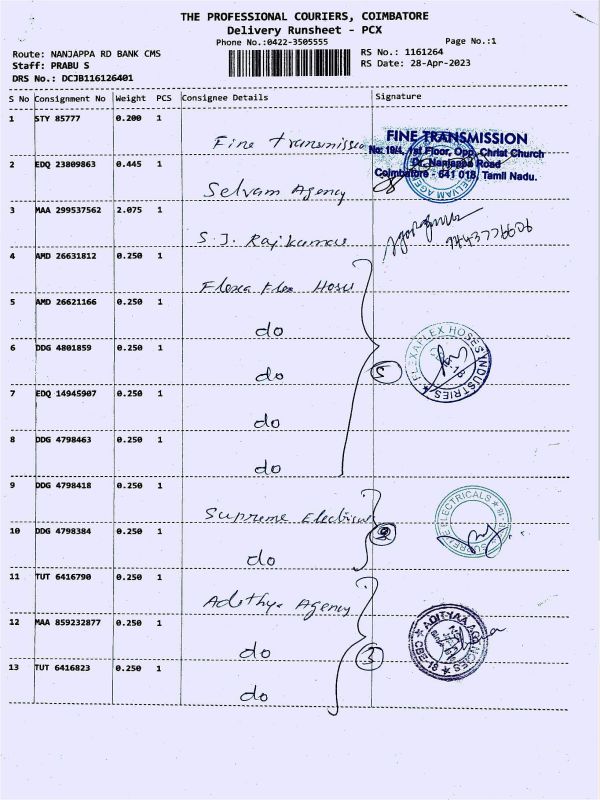 THE PROFESSIONAL COURIERS, COIMBATORE
Delivery Runsheet - PCX
Phone No.:0422-3505555
Page No.:1
Route: NANJAPPA RD BANK CMS
RS No.: 1161264
Staff: PRABU S
RS Date: 28-Apr-2023
DRS No.: DCJB116126401
S No Consignment No Weight PCS Consignee Details Signature
1 STY 85777 0.200 1
Fine transmission
FINE TRANSMISSION
No: 19/4, 1st Floor, Opp. Christ Church
Dr. Nanjappa Road
Coimbatore - 641 018, Tamil Nadu.
2 EDQ 23809863 0.445 1
Selvam Agency
SELVAM AGEN
3 MAA 299537562 2.075 1
S.J. Rajkumar
4 AMD 26631812 0.250 1
Flexa Flex Hose
5 AMD 26621166 0.250 1
do
6 DDG 4801859 0.250 1
do
5
FLEXAFLEX HOSES INDUSTRIES
7 EDQ 14945907 0.250 1
do
8 DDG 4798463 0.250 1
do
9 DDG 4798418 0.250 1
Supreme Electrical
ELECTRICALS
10 DDG 4798384 0.250 1
2
do
11 TUT 6416790 0.250 1
Adithya Agency
12 MAA 859232877 0.250 1
do
3
CBE-18
13 TUT 6416823 0.250 1
do